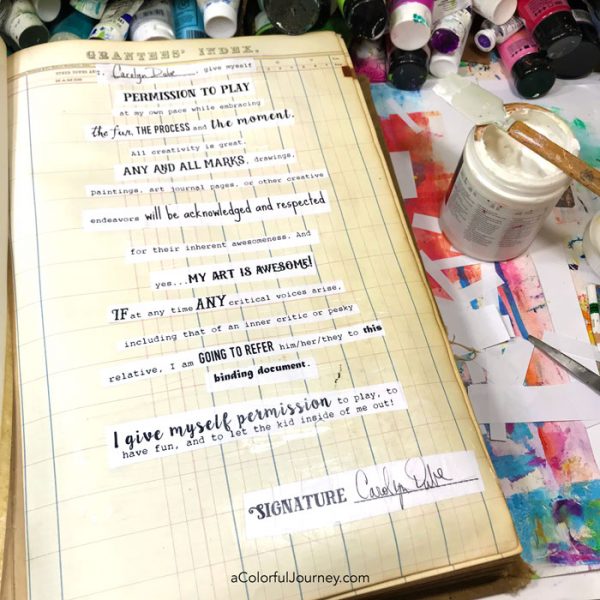 GRANTEES' INDEX.
I, Carolyn Dube, give myself
PERMISSION TO PLAY
at my own pace while embracing
the fun, THE PROCESS and the moment.
All creativity is great.
ANY AND ALL MARKS, drawings,
paintings, art journal pages, or other creative
endeavors will be acknowledged and respected
for their inherent awesomeness. And
yes...MY ART IS AWESOME!
IF at any time ANY critical voices arise,
including that of an inner critic or pesky
relative, I am GOING TO REFER him/her/they to this
binding document.
I give myself permission to play, to
have fun, and to let the kid inside of me out!
SIGNATURE Carolyn Dube
aColorfulJourney.com